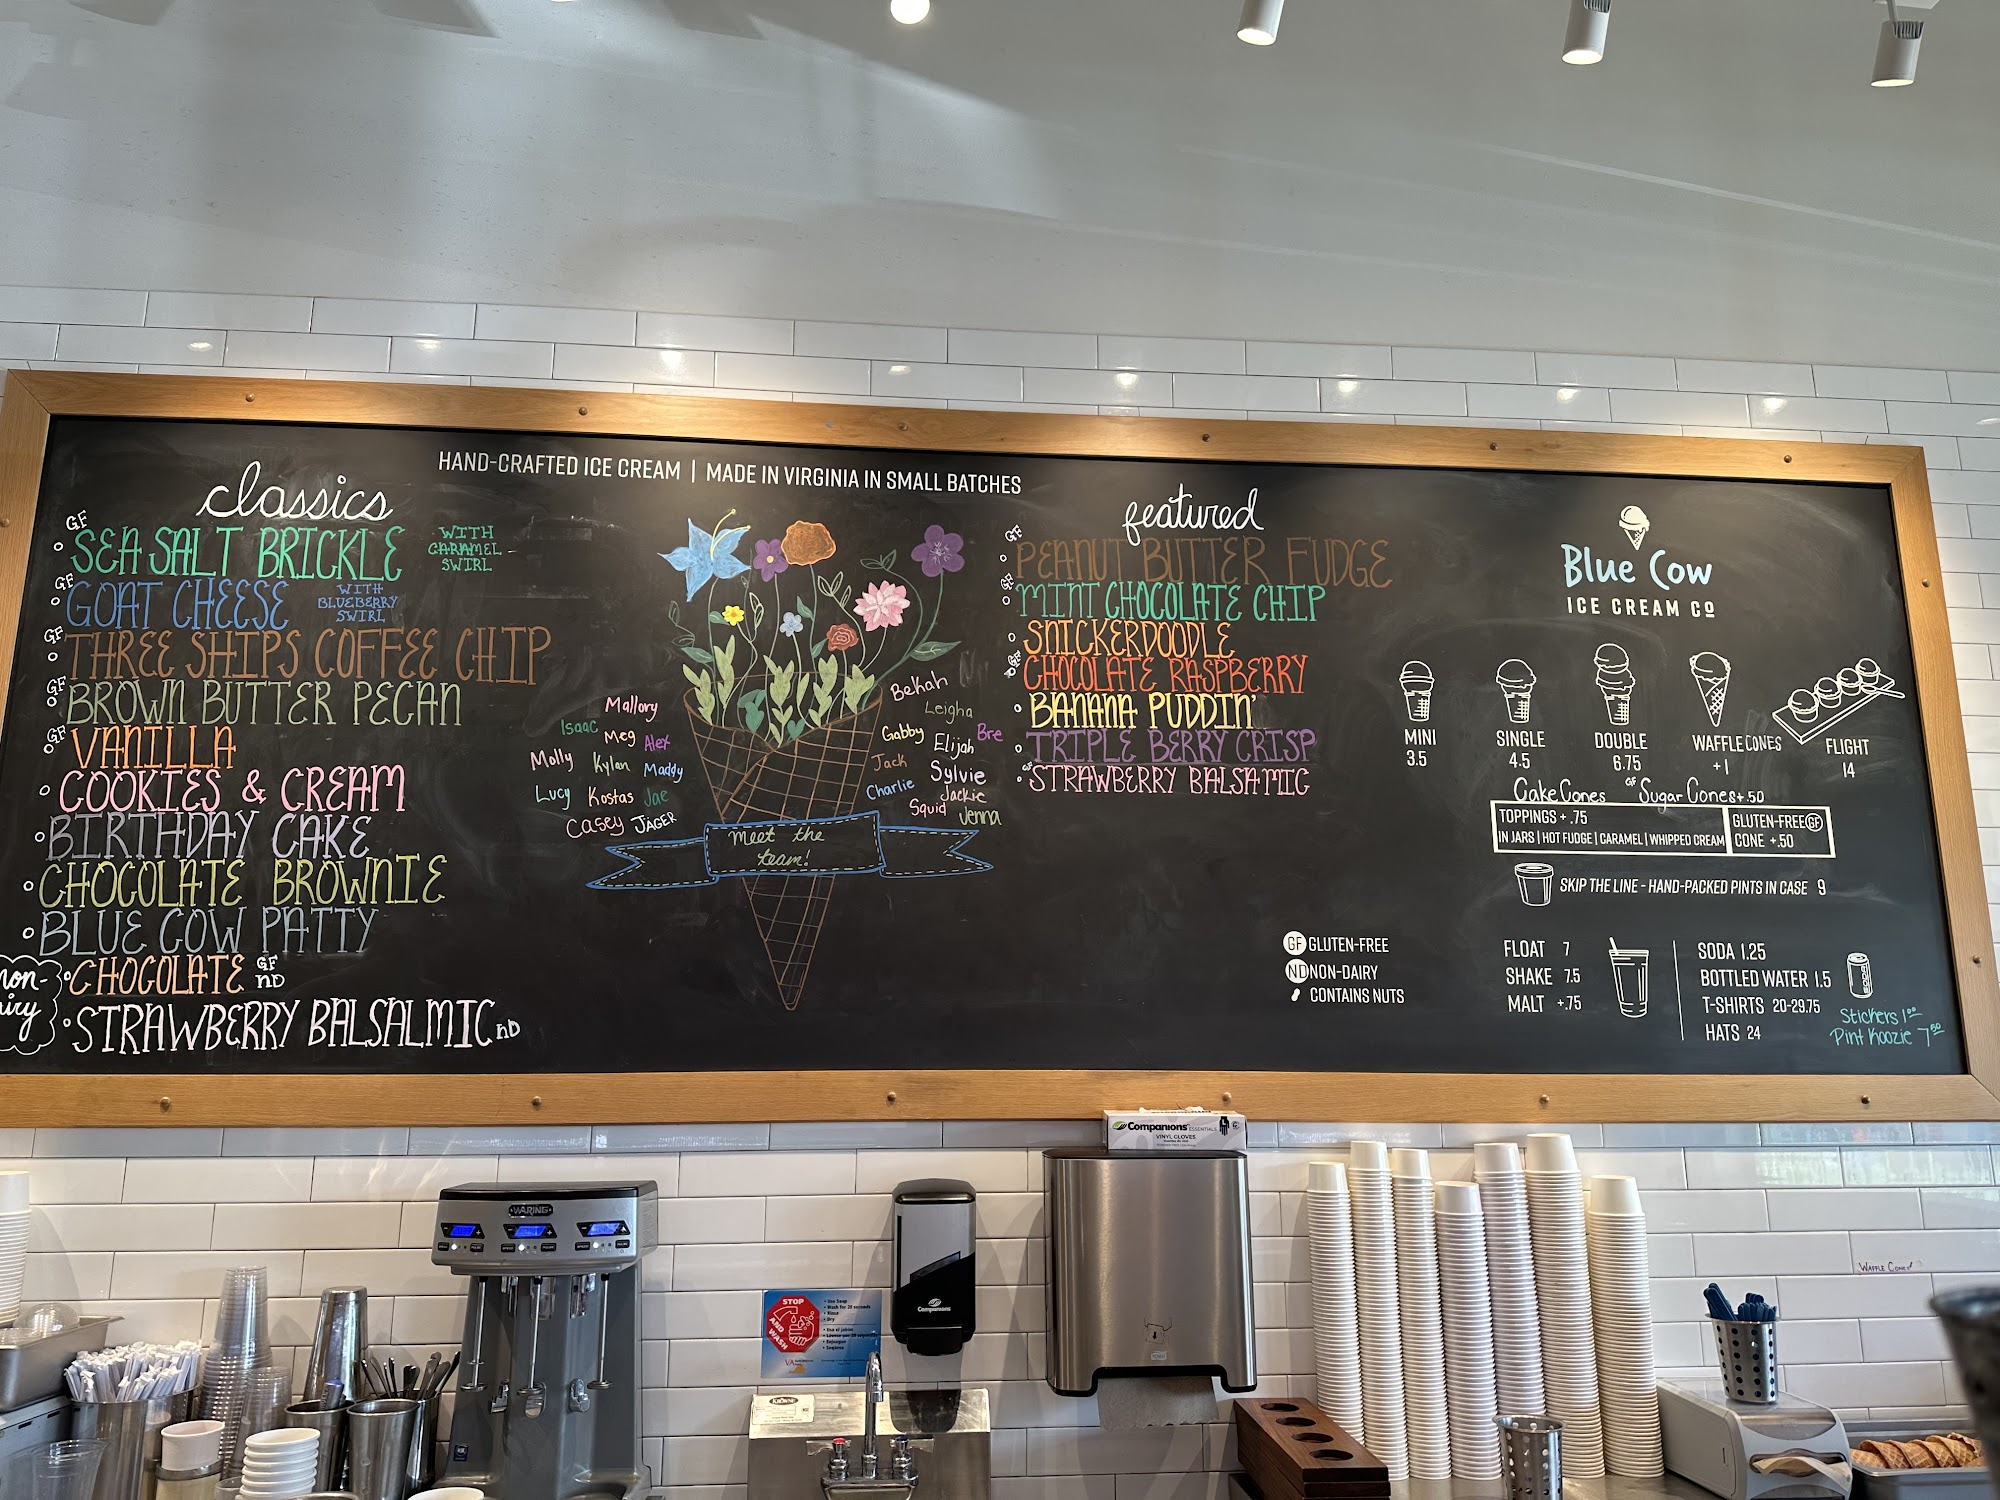 HAND-CRAFTED ICE CREAM | MADE IN VIRGINIA IN SMALL BATCHES
classics
GF
SEA SALT BRICKLE WITH CARAMEL SWIRL
GF
GOAT CHEESE WITH BLUEBERRY SWIRL
GF
THREE SHIPS COFFEE CHIP
GF
BROWN BUTTER PECAN
GF
VANILLA
COOKIES & CREAM
BIRTHDAY CAKE
CHOCOLATE BROWNIE
BLUE COW PATTY
CHOCOLATE GF ND
STRAWBERRY BALSALMIC ND
Mallory
Isaac
Meg
Alex
Molly
Kylan
Maddy
Lucy
Kostas
Jae
Casey
JAGER
Bekah
Leigha
Gabby
Elijah
Bre
Jack
Sylvie
Charlie
Jackie
Squid
Jenna
Meet the
team!
featured
GF
PEANUT BUTTER FUDGE
GF
MINT CHOCOLATE CHIP
SNICKERDOODLE
GF
CHOCOLATE RASPBERRY
BANANA PUDDIN'
TRIPLE BERRY CRISP
GF
STRAWBERRY BALSAMIC
GF GLUTEN-FREE
ND NON-DAIRY
CONTAINS NUTS
Blue Cow
ICE CREAM CO
MINI
3.5
SINGLE
4.5
DOUBLE
6.75
WAFFLE CONES
+1
FLIGHT
14
Cake Cones GF Sugar Cones +.50
TOPPINGS + .75
IN JARS | HOT FUDGE | CARAMEL | WHIPPED CREAM
GLUTEN-FREE GF
CONE +.50
SKIP THE LINE - HAND-PACKED PINTS IN CASE 9
FLOAT 7
SHAKE 7.5
MALT +.75
SODA 1.25
BOTTLED WATER 1.5
T-SHIRTS 20-29.75
HATS 24
SODA
Stickers 1.00
Pint Koozie 7.50
Companions ESSENTIALS
VINYL GLOVES
WARING
STOP
AND WASH
Companions
WAFFLE CONES!